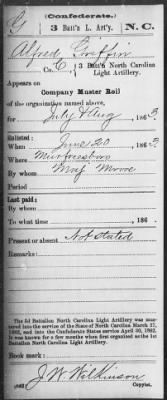 (Confederate.)
G 3 Batt'n L. Art'y. N. C.
Alfred Griffin
Co. C, 3 Batt'n North Carolina
Light Artillery.
Appears on
Company Muster Roll
of the organization named above,
for July & Aug, 1863.
Enlisted:
When June 20, 1863.
Where Murfreesboro
By whom Maj Moore
Period
Last paid:
By whom
To what time , 186 .
Present or absent Not stated
Remarks:
The 3d Battalion North Carolina Light Artillery was mustered into the service of the State of North Carolina March 17, 1862, and into the Confederate States service April 30, 1862.
It was known for a few months when first organized as the 1st Battalion North Carolina Light Artillery.
Book mark:
J W Wilkinson
(642) Copyist.